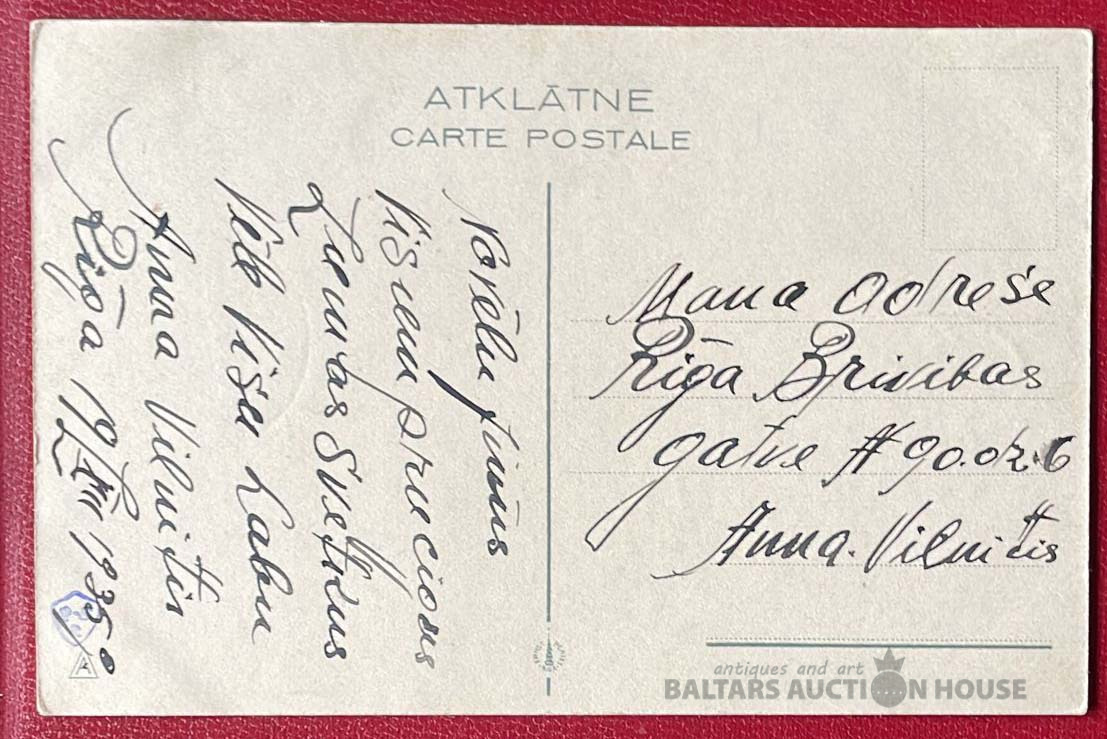 ATKLĀTNE
CARTE POSTALE
Novēlu jums
visiem priecigus
Ziemas Svetkus
Vēl visu Labu
Anna Vilnitis
Rīga 19 XII 1935
Mana adreše
Rīga Brivibas
gatve # 90. dz. 6
Anna. Vilnitis
antiques and art
BALTARS AUCTION HOUSE